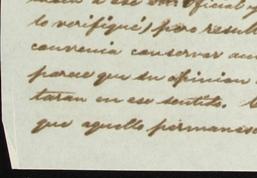 a ese Sor. oficial y
lo verifiqué) pero result
convenia conservar aun
parece que su opinion
taran en ese sentido.
que aquello permanec